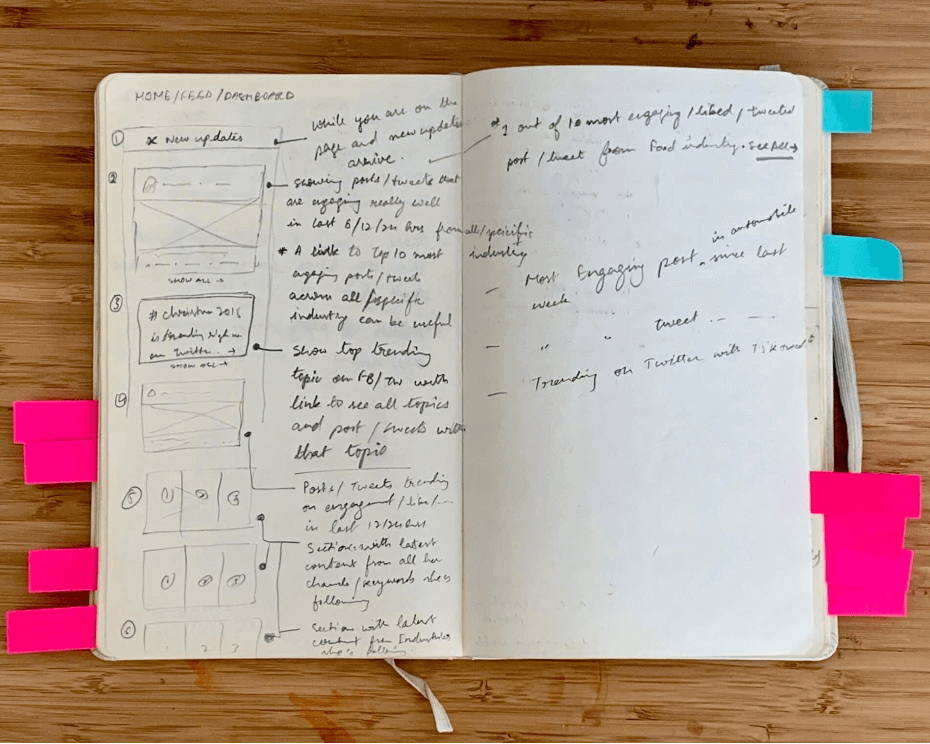 HOME/FEED/DASHBOARD
1
x New updates
while you are on the
page and new updates
arrive.
2
SHOW ALL →
showing posts/tweets that
are engaging really well
in last 6/12/24 hrs from all/specific
industry
* A link to Top 10 most
engaging posts/tweets
across all/specific
industry can be useful
3
# Christmas 2018
is trending right now
on Twitter. →
SHOW ALL →
Show top trending
topic on FB/TW with
link to see all topics
and post/tweets with
that topic
4
Posts/Tweets trending
on engagement/like/---
in last 12/24 hrs
5
1 2 3
1 2 3
Sections with latest
content from all her
channels/keywords she's
following
6
1 2 3
Section with latest
content from Industries
she's following
* 1 out of 10 most engaging/liked/tweeted
post/tweet from Food industry. See All →
— Most Engaging post in automobile since last
week
— " " tweet - - -
— Trending on Twitter with